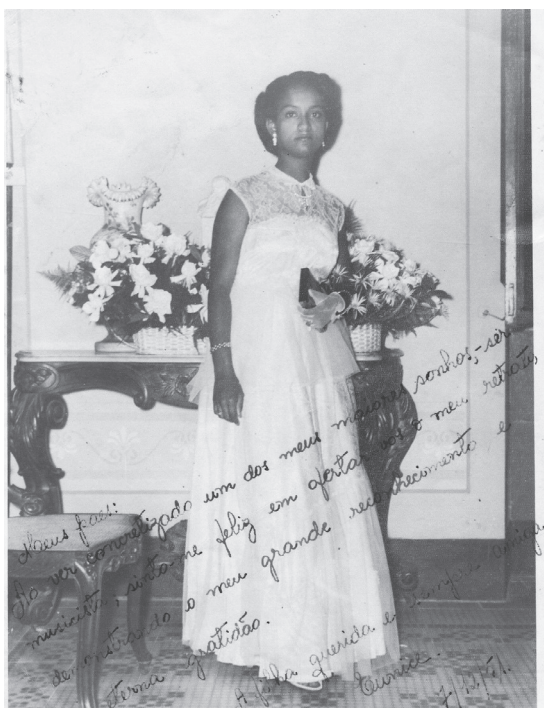 Meus pais:
Ao ver concretizado um dos meus maiores sonhos,-ser
musicista, sinto-me feliz em ofertar-vos o meu retrato,
demonstrando o meu grande reconhecimento e
eterna gratidão.
A filha querida e sempre amiga
Eunice.